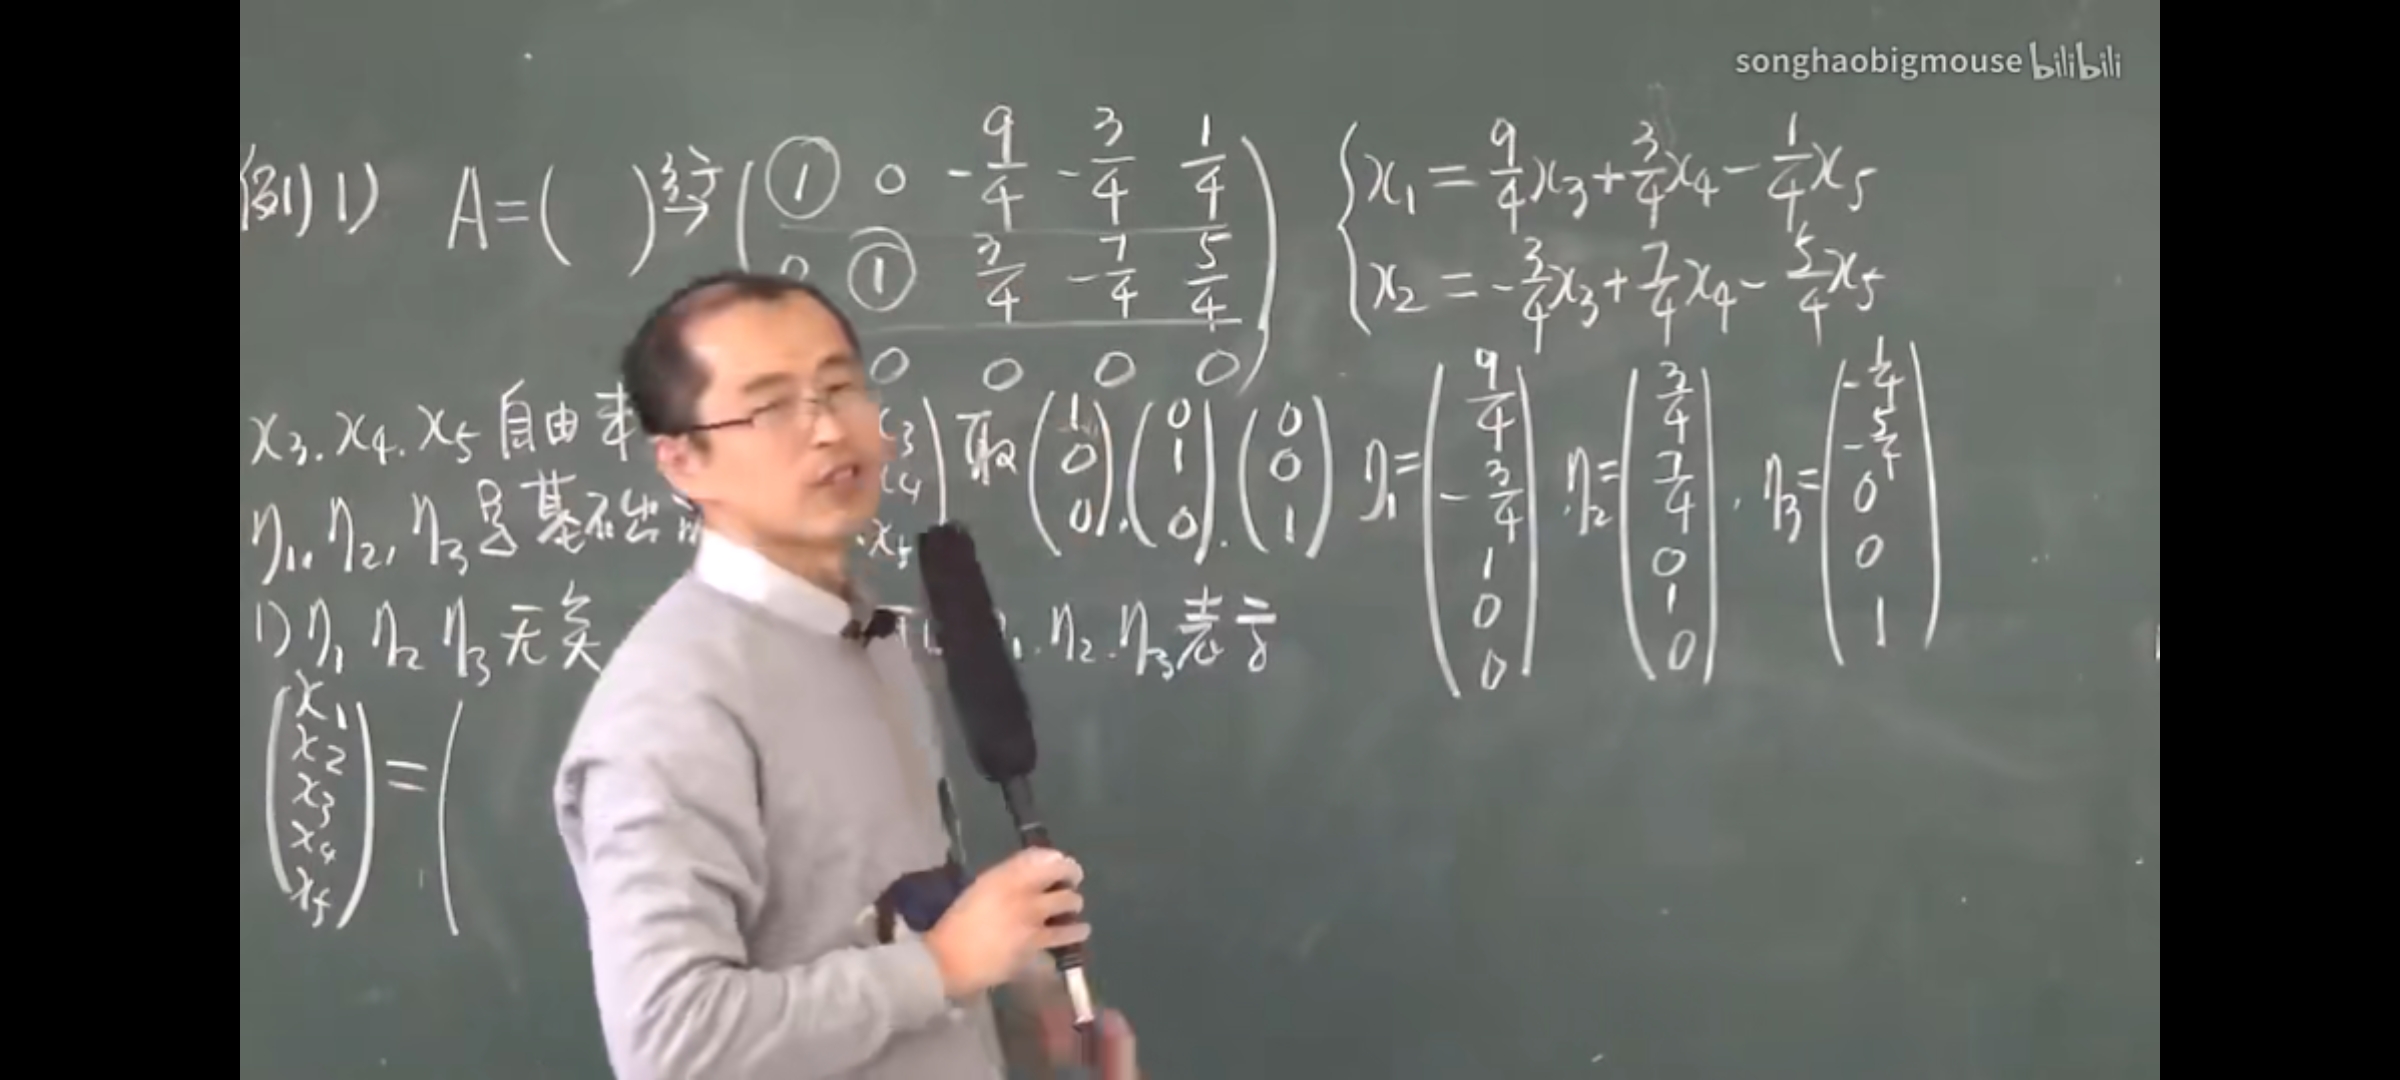 songhaobigmouse bilibili
例1) A=( ) 行→ ( ① 0 -9/4 -3/4 1/4
0 ① 3/4 -7/4 5/4
0 0 0 0 )
{ x₁ = 9/4x₃+3/4x₄-1/4x₅
x₂ = -3/4x₃+7/4x₄-5/4x₅
x₃.x₄.x₅ 自由 x₃ x₄ x₅ ) 取 (1 0 0), (0 1 0), (0 0 1)
η₁= (9/4 -3/4 1 0 0), η₂= (3/4 7/4 0 1 0), η₃= (-1/4 -5/4 0 0 1)
η₁,η₂,η₃是基础
1) η₁ η₂ η₃无关 .η₂.η₃表示
(x₁ x₂ x₃ x₄ x₅) = (